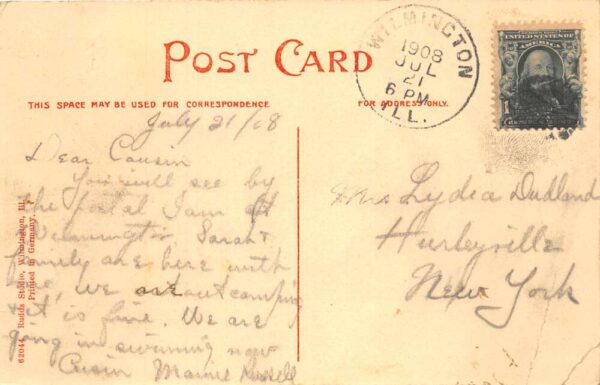 POST CARD
THIS SPACE MAY BE USED FOR CORRESPONDENCE.
FOR ADDRESS ONLY.
WILMINGTON
1908
JUL
21
6 PM
ILL.
UNITED STATES OF
AMERICA
July 21/08
Dear Cousin
You will see by
the postal I am at
Wilmington Sarah &
family are here with
me, we are out camping
& it is fine. We are
going in swimming now
Cusin Mamie Russell
Lydia Dudland
Hurleyville
New York
62044 Rudds Studio, Wilmington, Ill.
Printed in Germany.